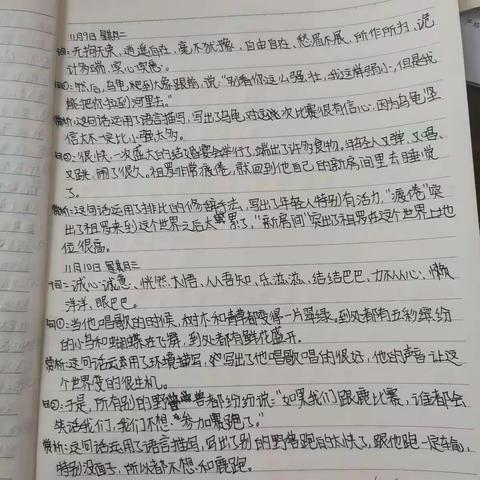 11月9日 星期二
词:无拘无束、逍遥自在、毫不犹豫、自由自在、愁眉不展、所作所为、诡
计多端、实心实意。
句①:然后,乌龟爬到大象跟前,说:"别看你这么强壮,我这样弱小,但是我
能把你拉到河里去。"
赏析:这句话运用了语言描写,写出了乌龟对这次比赛很有信心,因为乌龟坚
信大不一定比小强大多。
句②:很快,一次盛大的结婚宴会举行了,端出了许多食物。年轻人又弹、又唱、
又跳,闹了很久。祖努非常疲倦,就回到他自己的新房间里去睡觉
了。
赏析:这句话运用了排比的修辞手法,写出了年轻人特别有活力,"疲倦"突
出了祖努来到这个世界之后太累了,"新房间"突出了祖努在这个世界上地
位很高。
11月10日 星期三
词:诚心诚意、恍然大悟、从吾知、乐滋滋、结结巴巴、力不从心、懒
洋洋、眼巴巴。
句①:当他唱歌的时候,树木和青草都变得一片翠绿。到处都有五彩缤纷
的小鸟和蝴蝶在飞舞,到处都有鲜花盛开。
赏析:这句话运用了环境描写,写出了他唱歌唱的很好,他的声音让这
个世界变的很生机。
句②:于是,所有别的野兽都纷纷说:"如果我们跟鹿比赛,谁都会
笑话我们,我们不想参加赛跑了。"
赏析:这句话运用了语言描写,写出了别的野兽跑的太快了,跟他跑一定车偏,
特别没面子,所以都不想和鹿跑。